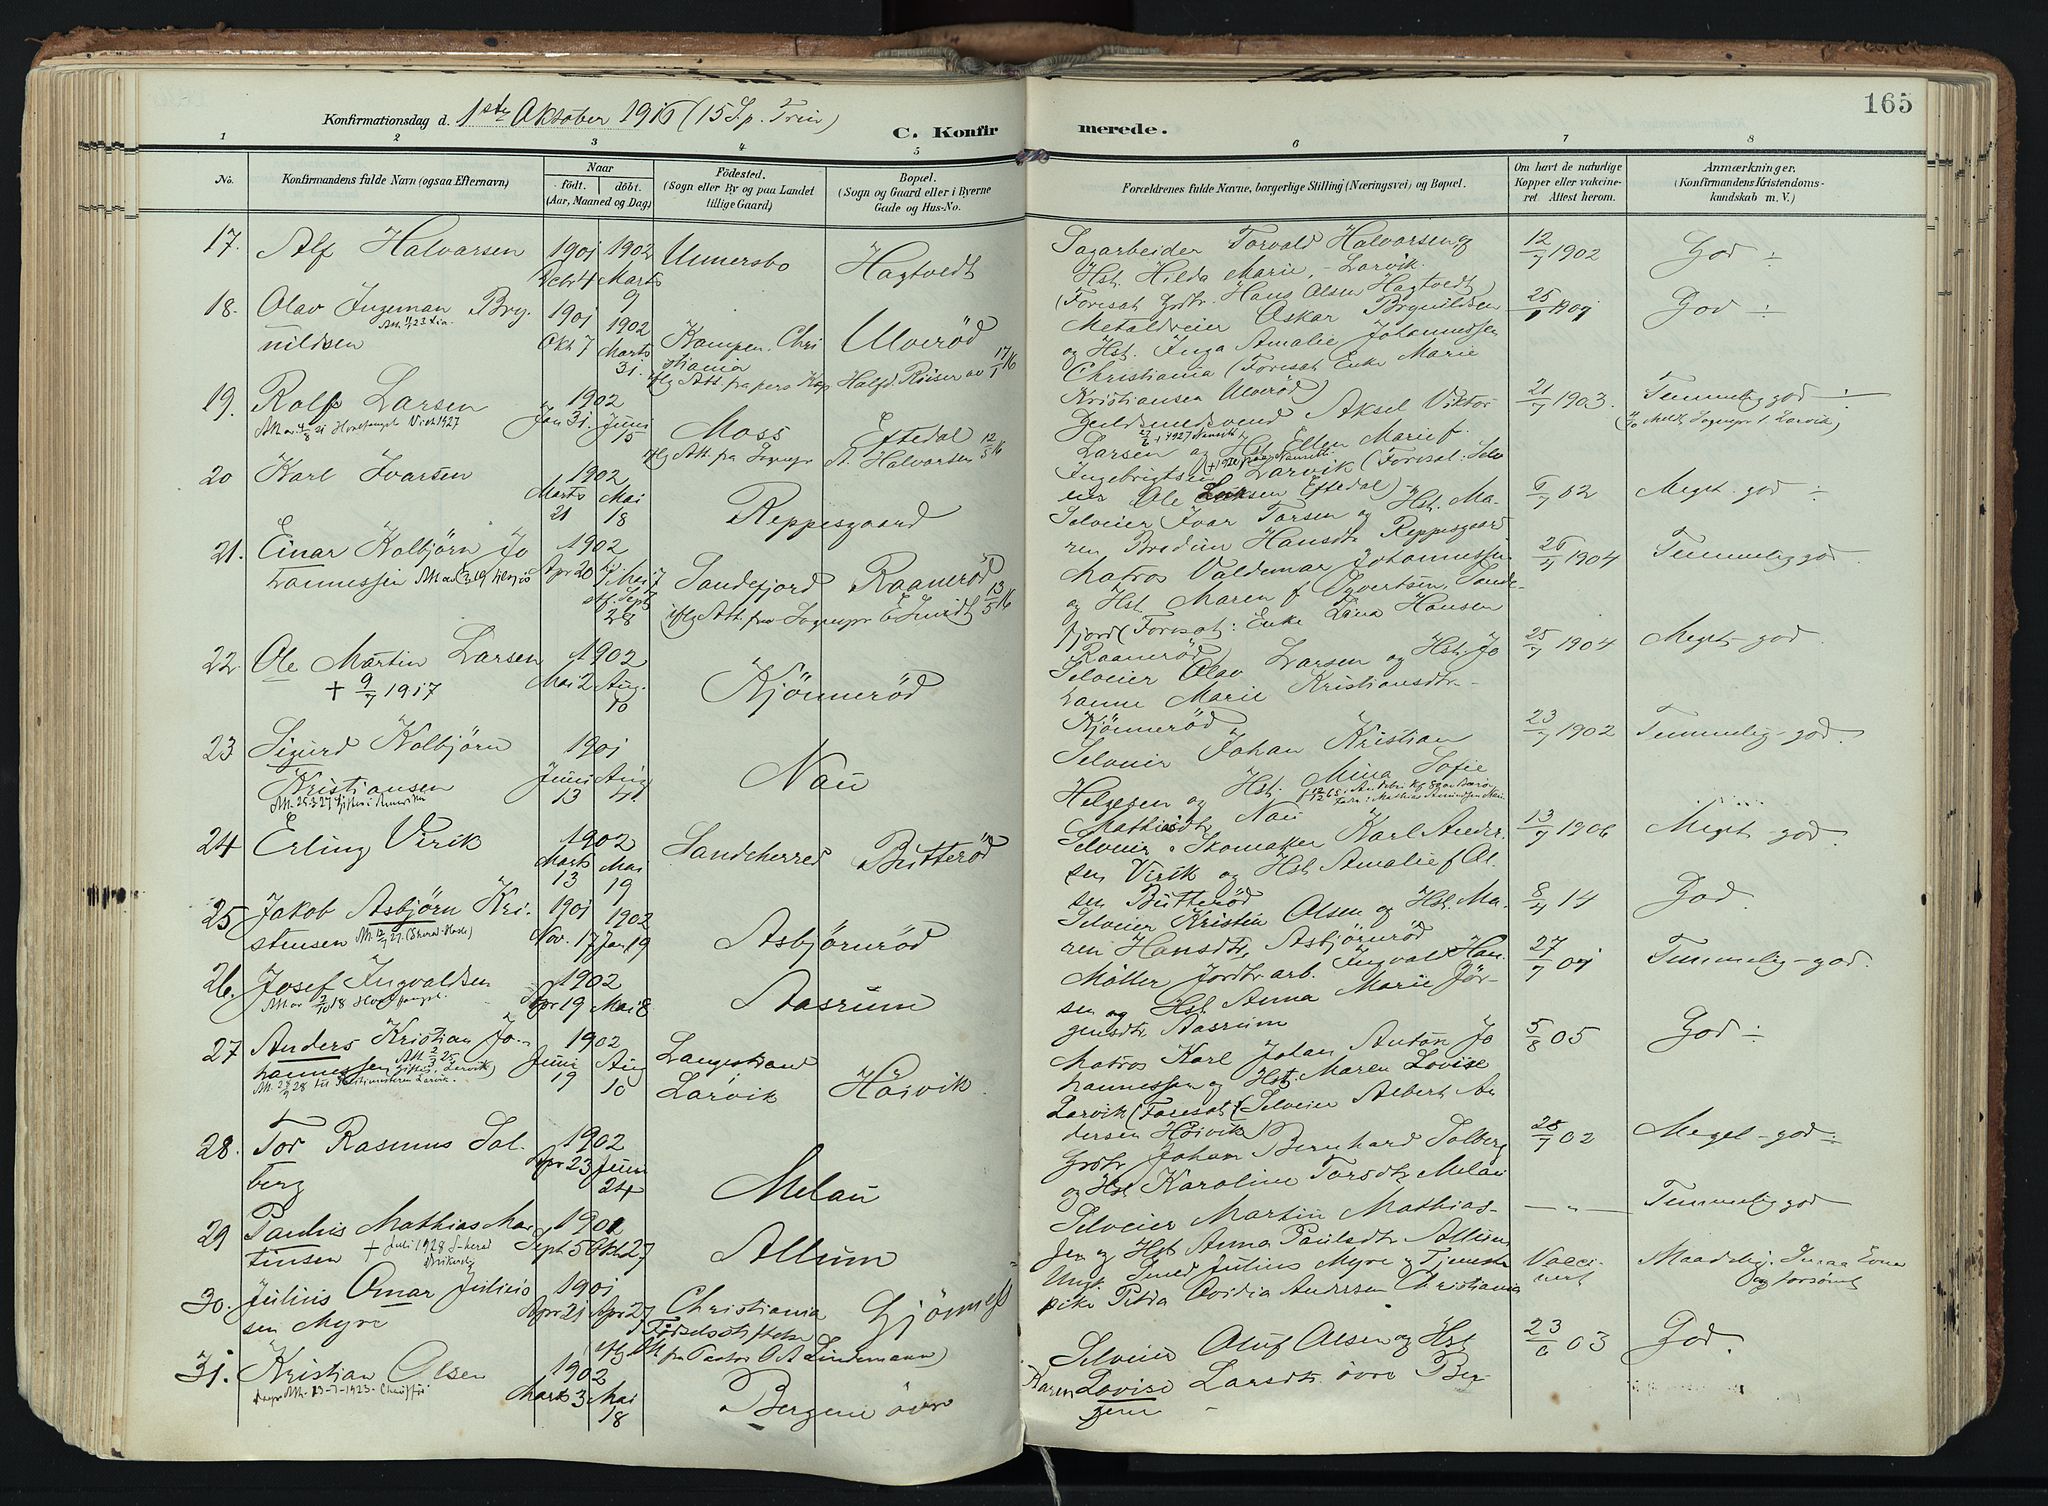 165
Konfirmationsdag d. 1ste Oktober 1916 (15 S. p. Trin)
C. Konfirmerede.
1 2 3 4 5 6 7 8
No.
Konfirmandens fulde Navn (ogsaa Efternavn)
Naar
født. døbt.
(Aar, Maaned og Dag)
Fødested.
(Sogn eller By og paa Landet
tillige Gaard)
Bopæl.
(Sogn og Gaard eller i Byerne
Gade og Hus-No.
Forældrenes fulde Navne, borgerlige Stilling (Næringsvei) og Bopæl.
Om havt de naturlige
Kopper eller vakcine-
ret. Attest herom.
Anmærkninger.
(Konfirmandens Kristendoms-
kundskab m. V.)
17. Alf Halvarsen 1901 Febr 4 1902 Marts 9 Unnersbo Hagtvedt
Sagarbeider Torvald Halvorsen og
Hst. Hilda Marie, - Larvik.
(Foresat Grdbr. Hans Olsen Hagtvedt)
12/7 1902 God ÷
18. Olav Ingeman Bry-
nildsen
1901 Okt 7 1902 Marts 31. Kampen. Chri
stiania Ulverød
iflg Att. fra pers Kap Halfd. Røiser av 17/1 16
Metaldreier Oskar Brynildsen
og Hst. Inga Amalie Johannessen
Christiania (Foresat Enke Marie
Kristiansen Ulverød)
God ÷
19. Rolf Larsen
1902 Jan 31. Juni 15 Moss Eftedal
iflg Att. fra Sognepr A. Halvorsen 12/5 16
Aksel Viktor
Larsen og Hst Ellen Marie f.
Ingebrigtsen Larvik (Foresat: Selv
eier Ole Eriksen Eftedal) -
21/7 1903. Temmelig god ÷
20 Karl Ivarsen 1902 Marts 21 Mai 18 Reppesgaard
Selveier Ivar Torsen og Hst. Ma-
ren Bredine Hansdtr Reppesgaar
6/7 02 Meget god ÷
21. Einar Kolbjørn Jo
hannessen
1902 Apr 20 Sandefjord Raanerød
iflg Att. fra Sognepr E. Smidt 13/5 16
Matros Valdemar Johannessen
og Hst. Maren f Syvertsen, Sande-
fjord (Foresat: Enke Lina Hansen
Raanerød)
26/7 1904 Temmelig god
22. Ole Martin Larsen 1902 Mai 2 Aug. 10 Kjønnerød
+ 9/7 1917
Selveier Olav Larsen og Hst. Jo
hanne Marie Kristiansdtr-
Kjønnerød
25/7 1904 Meget god.
23 Sigurd Kolbjørn
Kristiansen
1901 Juni 13 Aug 4. Nau
Selveier Johan Kristian
Helgesen og Hst. Mina Sofie
Mathiasdtr Nau
23/7 1902 Temmelig-god.
24 Erling Virik 1902 Marts 13 Mai 19 Sandeherred Butterød
Selveier Skomaker Karl Ander-
sen Virik og Hst Amalie f Ol
sen Butterød
13/7 1906 Meget-god.
25 Jakob Asbjørn Kri-
stensen
1901 Nov. 17 1902 Jan. 19 Asbjørnrød
Selveier Kristen Olsen og Hst. Ma-
ren Hansdtr, Asbjørnrød
14 God.
26. Josef Ingvaldsen
1902 Apr 19 Mai 8 Aasrum
Møller Jordbr arb. Ingvald Han
sen og Hst Anna Marie Jør-
gensdtr Aasrum
27/7 Temmelig-god.
27 Anders Kristian Jo-
hannessen
1902 Juni 19 Aug 10 Langestrand
Larvik Høivik
Matros Karl Johan Anton Jo
hannessen og Hst. Maren Lovise
Larvik (Foresat: Selveier Albert An
dersen Høivik)
5/8 05 God ÷
28. Tor Rasmus Sol-
berg
1902 Apr 23 Juni 24 Melau
Grdbr Johan Bernhard Solberg
og Hst Karoline Torsdtr Melau
28/7 02 Meget-god ÷
29 Paulus Mathias Mar
tinsen
+ Juli 1928 S-herred
1901 Sept 5 Okt. 27 Allum
Selveier Martin Mathias-
sen og Hst Anna Paulsdtr Allum
— „ — Temmelig god
30. Julius Omar Julius
sen Myre
1901 Apr 21 Apr 27 Christiania
Fødselsstiftelse Gjønnes
(iflg Att. fra Pastor O A Lindemann)
Ungk Smed Julius Myre og Tjeneste
pike Petra Ovidia Andersen Christiania
Vacci-
nert
Maadelig.
31. Kristian Olsen
1902 Marts 3 Mai 18 Bergene øvre
Selveier Oluf Olsen og Hst
Karen Lovise Larsdtr øvre Ber-
gene -
23/6 03 God.